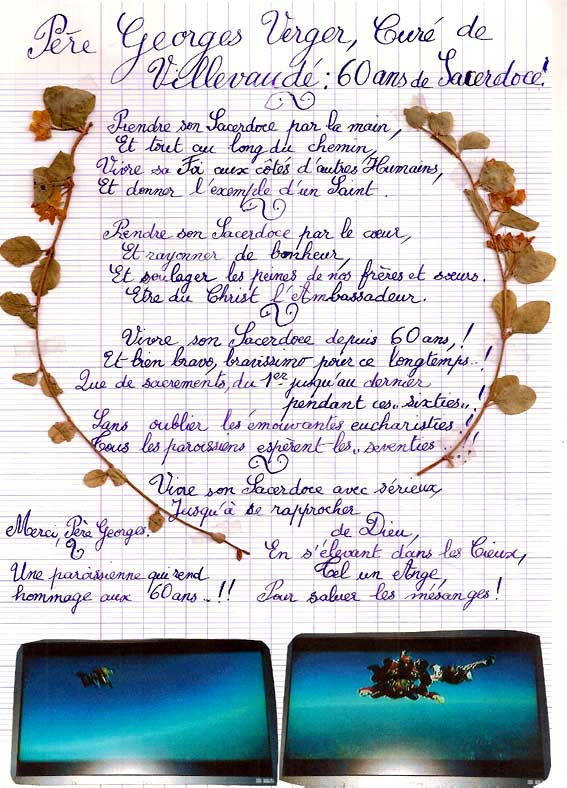 Père Georges Verger, Curé de
Villevaudé : 60 ans de Sacerdoce !
Prendre son Sacerdoce par la main,
Et tout au long du chemin,
Vivre sa Foi aux côtés d'autres Humains,
Et donner l'exemple d'un Saint.
Prendre son Sacerdoce par le cœur,
Et rayonner de bonheur,
Et soulager les peines de nos frères et sœurs.
Etre du Christ l'Ambassadeur.
Vivre son Sacerdoce depuis 60 ans, !
Et bien bravo, bravissimo pour ce longtemps..!
Que de sacrements, du 1er jusqu'au dernier
pendant ces "sixties"..!
Sans oublier les émouvantes eucharisties !
Tous les paroissiens espèrent les "seventies"...!!
Vivre son Sacerdoce avec sérieux,
Jusqu'à se rapprocher
de Dieu,
En s'élevant dans les Cieux,
Tel un Ange,
Pour saluer les mésanges !
Merci, Père Georges.
Une paroissienne qui rend
hommage aux 60 ans..!!